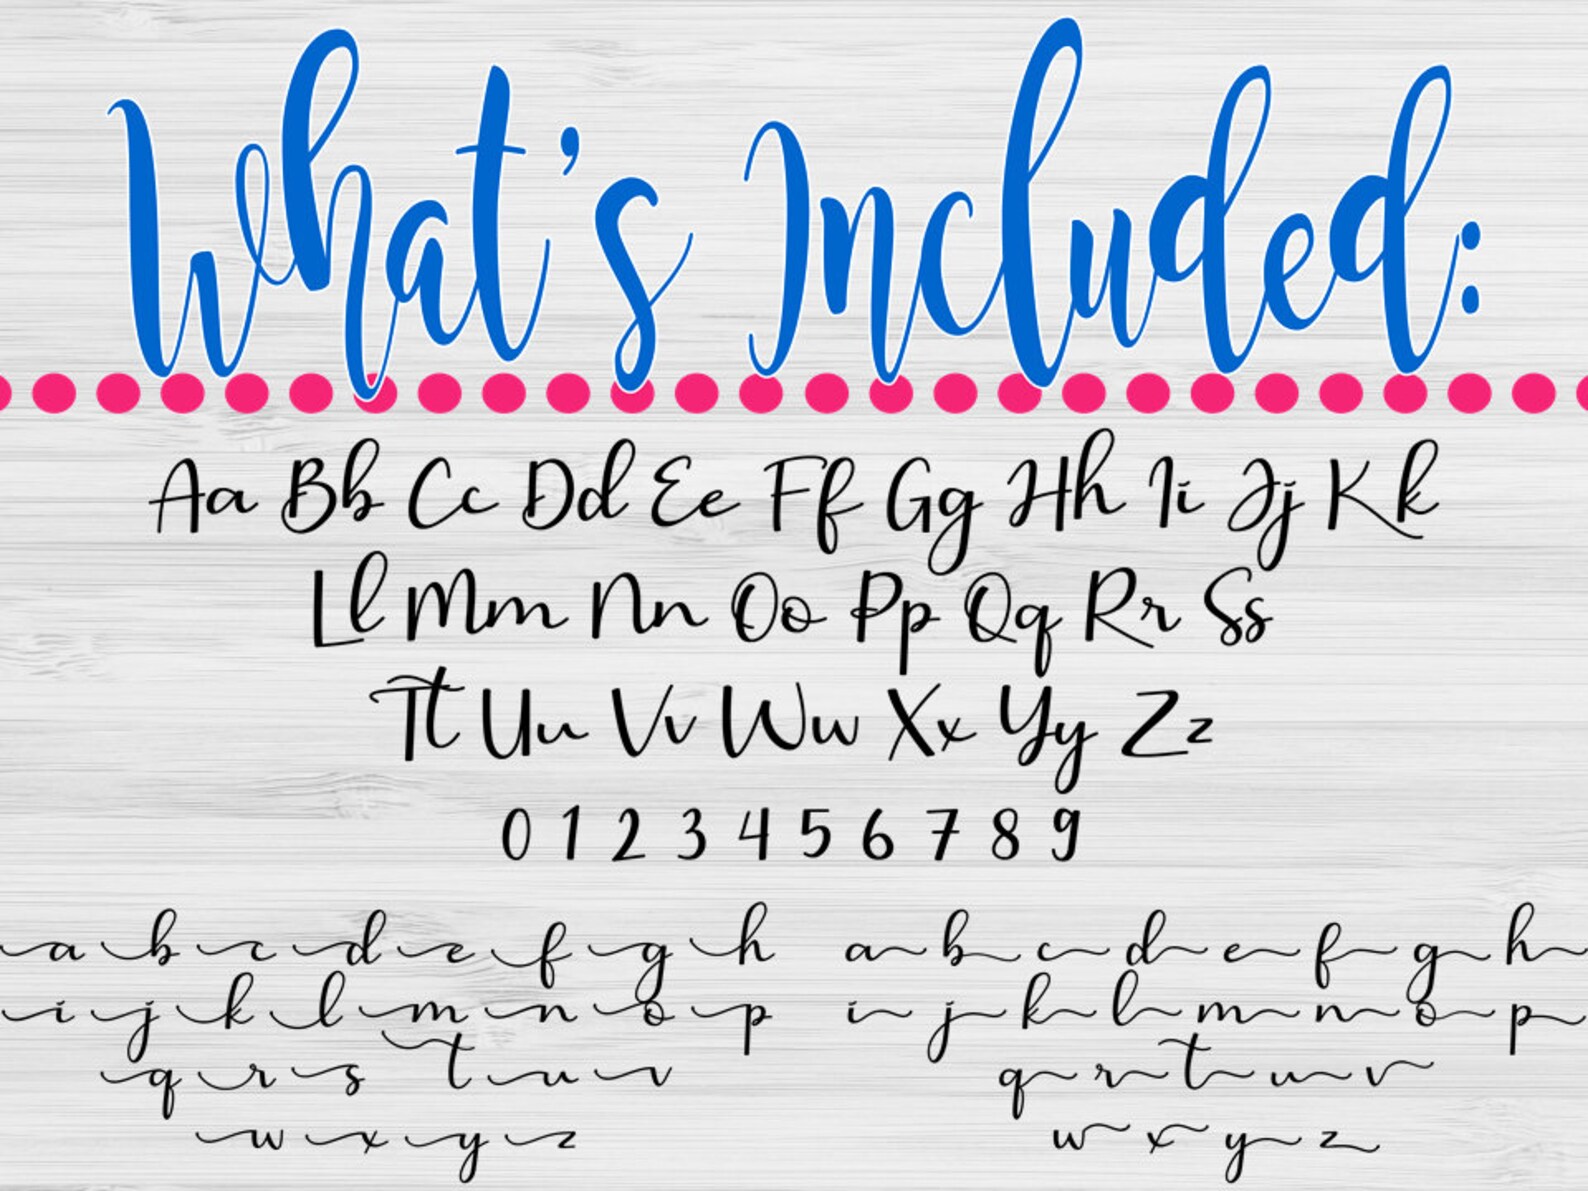 What's Included:
Aa Bb Cc Dd Ee Ff Gg Hh Ii Jj Kk
Ll Mm Nn Oo Pp Qq Rr Ss
Tt Uu Vv Ww Xx Yy Zz
0 1 2 3 4 5 6 7 8 9
a b c d e f g h
i j k l m n o p
q r s t u v
w x y z
a b c d e f g h
i j k l m n o p
q r t u v
w x y z